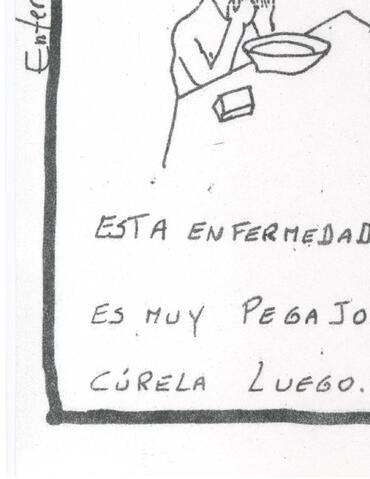 Enter
ESTA ENFERMEDAD
ES MUY PEGAJO
CÚRELA LUEGO.